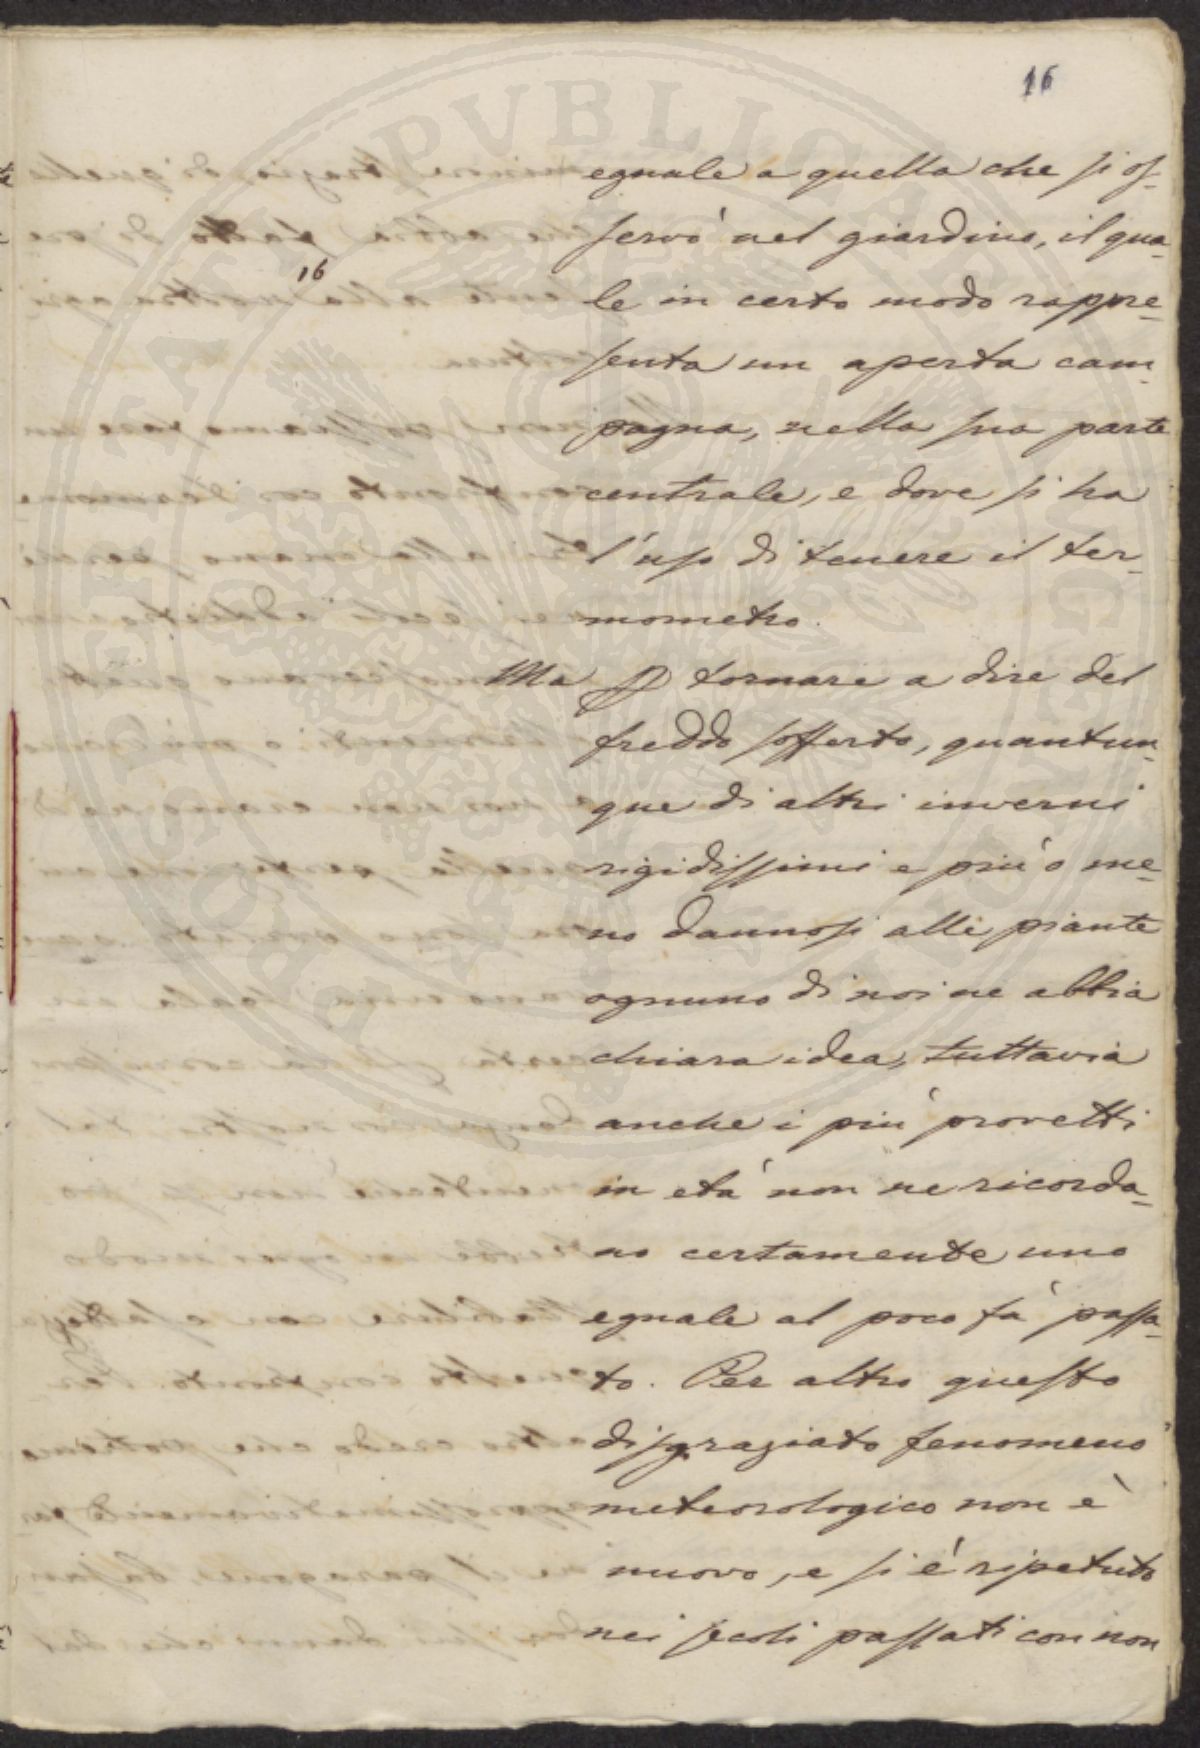 16
eguale a quella che si os-
servò nel giardino, il qua-
16
le in certo modo rappre-
senta un aperta cam-
pagna, nella sua parte
centrale, e dove si ha
l'uso di tenere il ter-
mometro.
Ma tornare a dire del
freddo sofferto, quantun-
que di altri inverni
rigidissimi e più o me-
no dannosi alle piante
ognuno di noi ne abbia
chiara idea, tuttavia
anche i più provetti
in età non ne ricorda-
no certamente uno
eguale al poco fà passa-
to. Per altro questo
disgraziato fenomeno
meteorologico non è
nuovo, e si è ripetuto
nei secoli passati con non